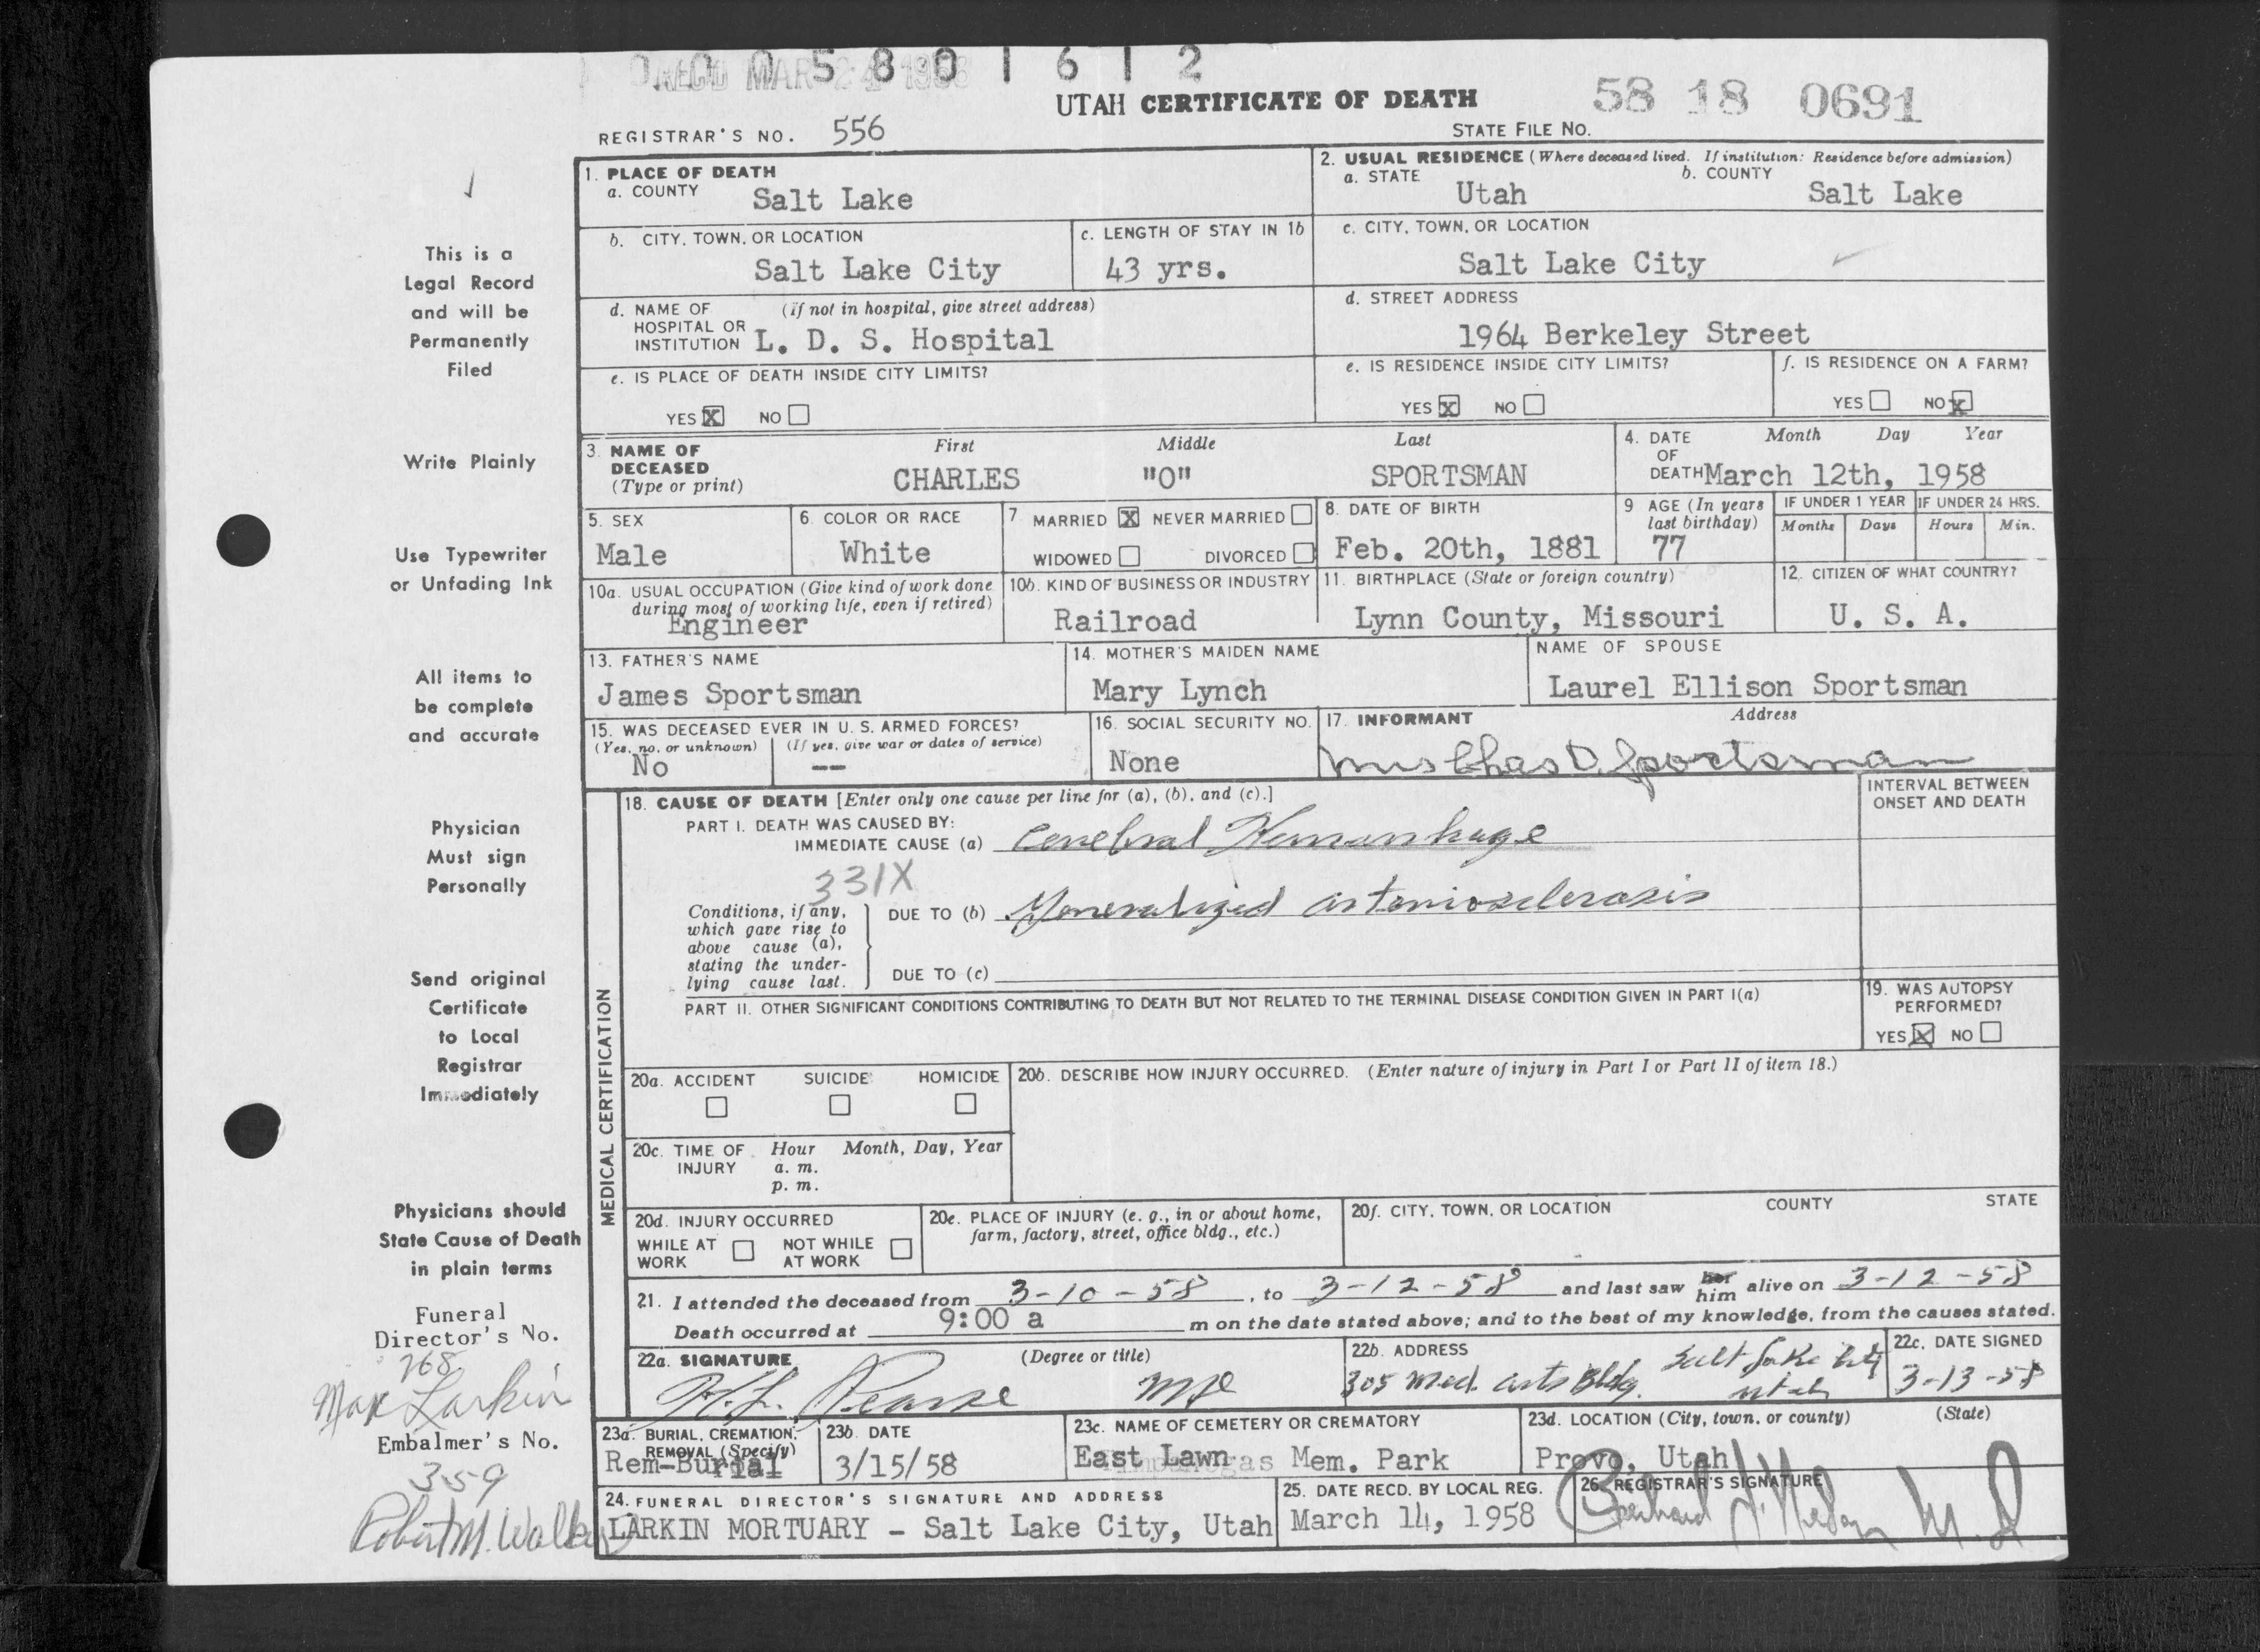 0 0 0 5 8 0 1 6 1 2
REC'D MAR 24 1958
UTAH CERTIFICATE OF DEATH
58 18 0691
REGISTRAR'S NO. 556
STATE FILE NO.
1. PLACE OF DEATH
a. COUNTY Salt Lake
2. USUAL RESIDENCE (Where deceased lived. If institution: Residence before admission)
a. STATE Utah b. COUNTY Salt Lake
b. CITY, TOWN, OR LOCATION Salt Lake City
c. LENGTH OF STAY IN 1b 43 yrs.
c. CITY, TOWN, OR LOCATION Salt Lake City
d. NAME OF HOSPITAL OR INSTITUTION (If not in hospital, give street address) L. D. S. Hospital
d. STREET ADDRESS 1964 Berkeley Street
e. IS PLACE OF DEATH INSIDE CITY LIMITS?
YES X NO
e. IS RESIDENCE INSIDE CITY LIMITS?
YES X NO
f. IS RESIDENCE ON A FARM?
YES NO X
3. NAME OF DECEASED (Type or print)
First Middle Last
CHARLES "O" SPORTSMAN
4. DATE OF DEATH Month Day Year
March 12th, 1958
5. SEX Male
6. COLOR OR RACE White
7. MARRIED X NEVER MARRIED
WIDOWED DIVORCED
8. DATE OF BIRTH Feb. 20th, 1881
9 AGE (In years last birthday) 77
IF UNDER 1 YEAR Months Days
IF UNDER 24 HRS. Hours Min.
10a. USUAL OCCUPATION (Give kind of work done during most of working life, even if retired)
Engineer
10b. KIND OF BUSINESS OR INDUSTRY
Railroad
11. BIRTHPLACE (State or foreign country)
Lynn County, Missouri
12. CITIZEN OF WHAT COUNTRY?
U. S. A.
13. FATHER'S NAME
James Sportsman
14. MOTHER'S MAIDEN NAME
Mary Lynch
NAME OF SPOUSE
Laurel Ellison Sportsman
15. WAS DECEASED EVER IN U. S. ARMED FORCES?
(Yes, no. or unknown) (If yes, give war or dates of service)
No --
16. SOCIAL SECURITY NO.
None
17. INFORMANT Address
Mrs Chas O. Sportsman
MEDICAL CERTIFICATION
18. CAUSE OF DEATH [Enter only one cause per line for (a), (b), and (c).]
INTERVAL BETWEEN ONSET AND DEATH
PART I. DEATH WAS CAUSED BY:
IMMEDIATE CAUSE (a) Cerebral Hemorrhage
331X
Conditions, if any, which gave rise to above cause (a), stating the underlying cause last.
DUE TO (b) Generalized arteriosclerosis
DUE TO (c)
PART II. OTHER SIGNIFICANT CONDITIONS CONTRIBUTING TO DEATH BUT NOT RELATED TO THE TERMINAL DISEASE CONDITION GIVEN IN PART I(a)
19. WAS AUTOPSY PERFORMED?
YES X NO
20a. ACCIDENT SUICIDE HOMICIDE
20b. DESCRIBE HOW INJURY OCCURRED. (Enter nature of injury in Part I or Part II of item 18.)
20c. TIME OF INJURY Hour Month, Day, Year
a. m.
p. m.
20d. INJURY OCCURRED
WHILE AT WORK NOT WHILE AT WORK
20e. PLACE OF INJURY (e. g., in or about home, farm, factory, street, office bldg., etc.)
20f. CITY, TOWN, OR LOCATION COUNTY STATE
21. I attended the deceased from 3-10-58, to 3-12-58 and last saw her him alive on 3-12-58
Death occurred at 9:00 a m on the date stated above; and to the best of my knowledge, from the causes stated.
22a. SIGNATURE (Degree or title)
H. L. Pearse MD
22b. ADDRESS
305 Med. Arts Bldg. Salt Lake City Utah
22c. DATE SIGNED
3-13-58
23a. BURIAL, CREMATION, REMOVAL (Specify)
Rem-Burial
23b. DATE
3/15/58
23c. NAME OF CEMETERY OR CREMATORY
East Lawn Mem. Park
23d. LOCATION (City, town, or county) (State)
Provo, Utah
24. FUNERAL DIRECTOR'S SIGNATURE AND ADDRESS
LARKIN MORTUARY - Salt Lake City, Utah
25. DATE RECD. BY LOCAL REG.
March 14, 1958
26. REGISTRAR'S SIGNATURE
M.D
This is a
Legal Record
and will be
Permanently
Filed
Write Plainly
Use Typewriter
or Unfading Ink
All items to
be complete
and accurate
Physician
Must sign
Personally
Send original
Certificate
to Local
Registrar
Immediately
Physicians should
State Cause of Death
in plain terms
Funeral
Director's No.
268
Max Larkin
Embalmer's No.
359
Robert M. Walker